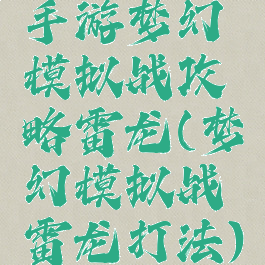 手游梦幻
模拟战攻
略雷龙(梦
幻模拟战
雷龙打法)